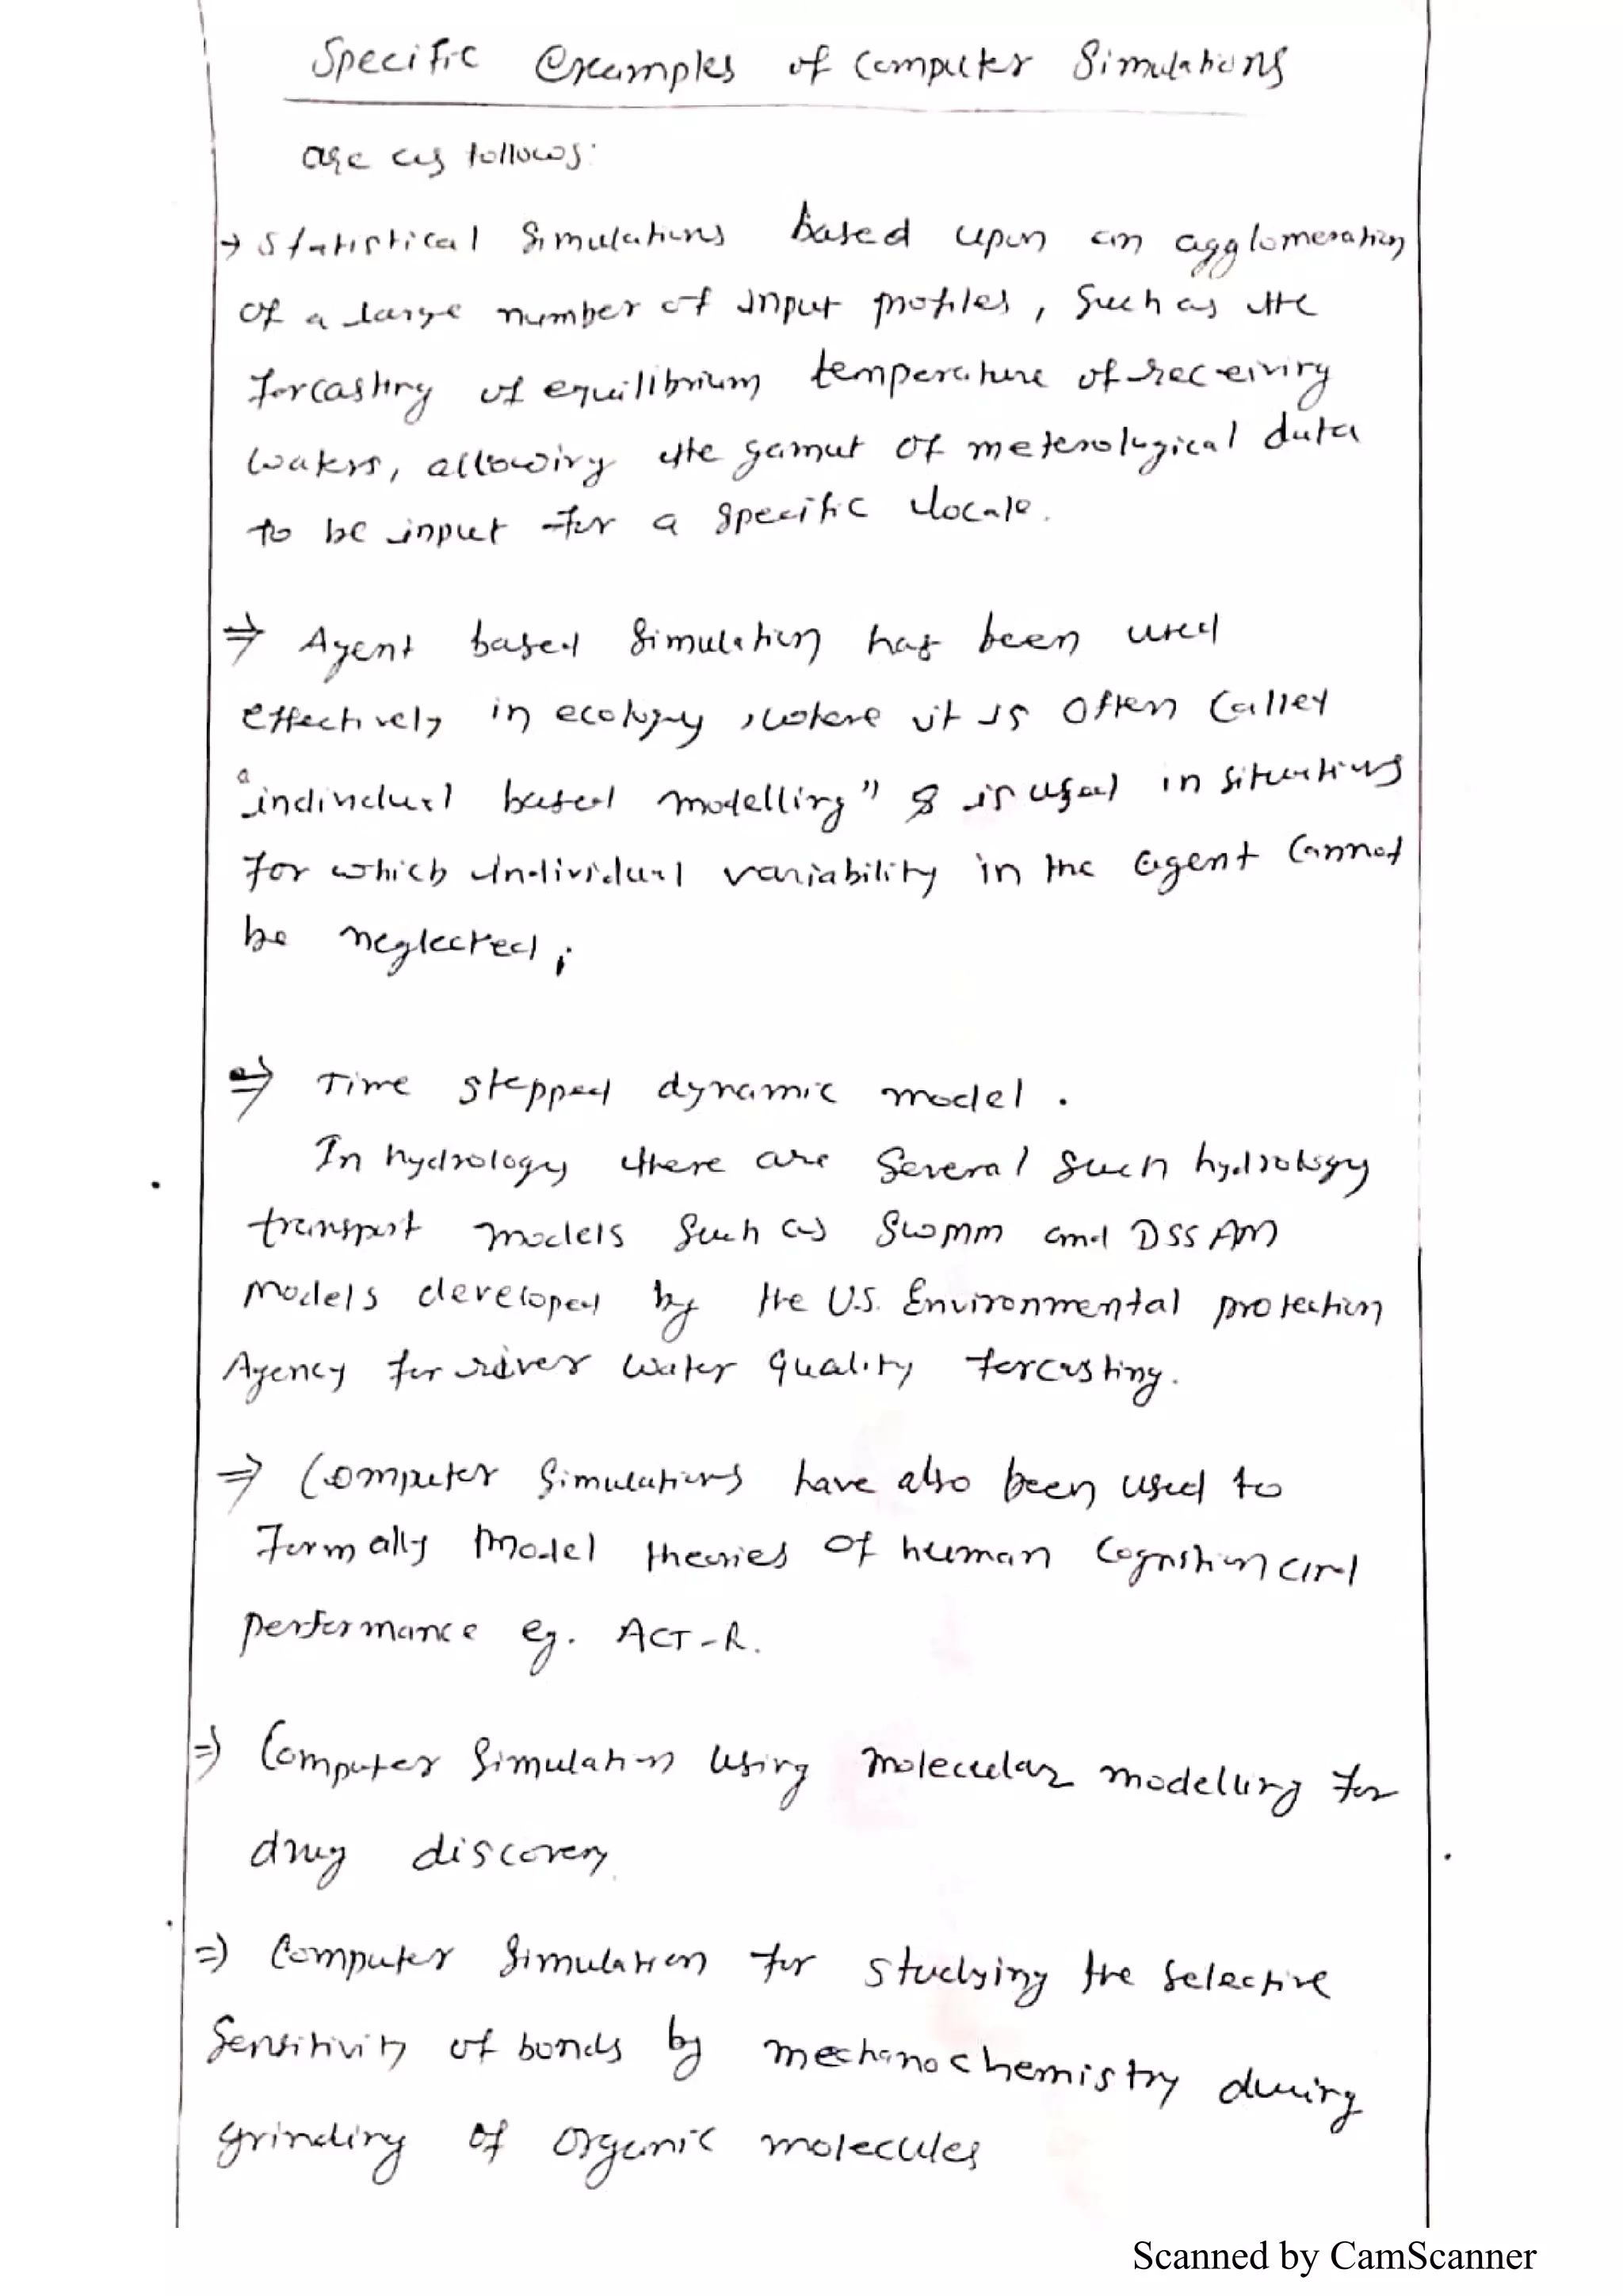 Specific Examples of Computer Simulations
are as follows:
→ Statistical Simulations based upon an agglomeration
of a large number of input profiles, such as the
forcasting of equilibrium temperature of receiving
waters, allowing the gamut of meterological data
to be input for a specific locale.
⇒ Agent based Simulation has been used
effectively in ecology, where it is often called
"individual based modelling" & is used in situations
for which individual variability in the agent cannot
be neglected;
⇒ Time stepped dynamic model.
In hydrology there are several such hydrology
transport models such as SWMM and DSSAM
models developed by the U.S. Environmental protection
Agency for river water quality forcasting.
⇒ Computer Simulations have also been used to
formally model theories of human cognition and
performance eg. ACT-R.
⇒ Computer Simulation using molecular modelling for
drug discovery
⇒ Computer Simulation for studying the selective
Sensitivity of bonds by mechanochemistry during
grinding of organic molecules
Scanned by CamScanner